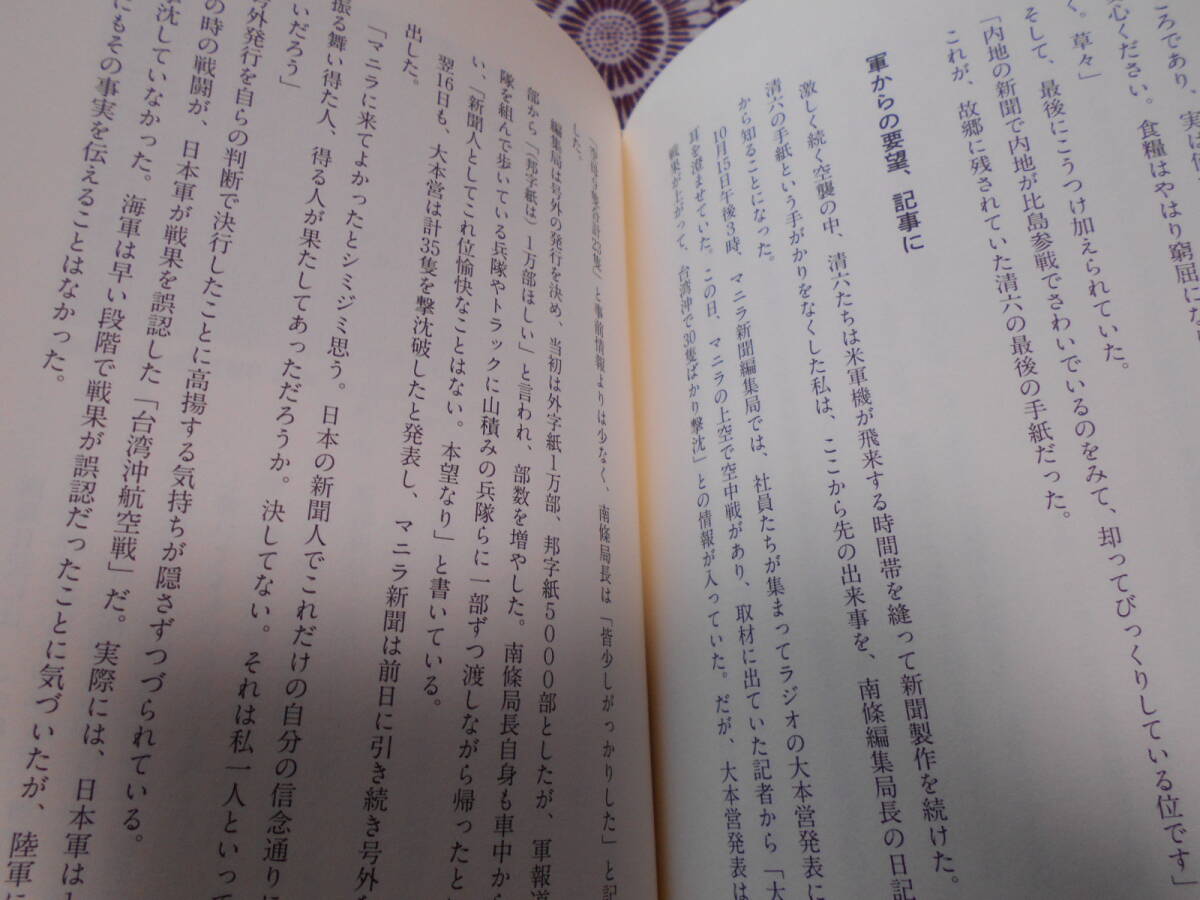 ころであり、実に
安心ください。食糧はやはり窮屈にな
く。草々」
そして、最後にこうつけ加えられていた。
「内地の新聞で内地が比島参戦でさわいでいるのをみて、却ってびっくりしている位です」
これが、故郷に残されていた清六の最後の手紙だった。
軍からの要望、記事に
激しく続く空襲の中、清六たちは米軍機が飛来する時間帯を縫って新聞製作を続けた。
清六の手紙という手がかりをなくした私は、ここから先の出来事を、南條編集局長の日記
から知ることになった。
10月15日午後3時、マニラ新聞編集局では、社員たちが集まってラジオの大本営発表に
耳を澄ませていた。この日、マニラの上空で空中戦があり、取材に出ていた記者から「大
戦果が上がって、台湾沖で30隻ばかり撃沈」との情報が入っていた。だが、大本営発表は
と事前情報よりは少なく、南條局長は「皆少しがっかりした」と記
した。
編集局は号外の発行を決め、当初は外字紙1万部、邦字紙5000部としたが、軍報道
部から、「（邦字紙は）1万部ほしい」と言われ、部数を増やした。南條局長自身も車中から
隊を組んで歩いている兵隊やトラックに山積みの兵隊らに一部ずつ渡しながら帰ったと
い、「新聞人としてこれ位愉快なことはない。本望なり」と書いている。
翌16日も、大本営は計35隻を撃沈破したと発表し、マニラ新聞は前日に引き続き号外を
出した。
「マニラに来てよかったとシミジミ思う。日本の新聞人でこれだけの自分の信念通りに
振る舞い得た人、得る人が果たしてあっただろうか。決してない。それは私一人といって
いだろう」
号外発行を自らの判断で決行したことに高揚する気持ちが隠さずつづられている。
の時の戦闘が、日本軍が戦果を誤認した「台湾沖航空戦」だ。実際には、日本軍は
沈していなかった。海軍は早い段階で戦果が誤認だったことに気づいたが、陸軍に
にもその事実を伝えることはなかった。